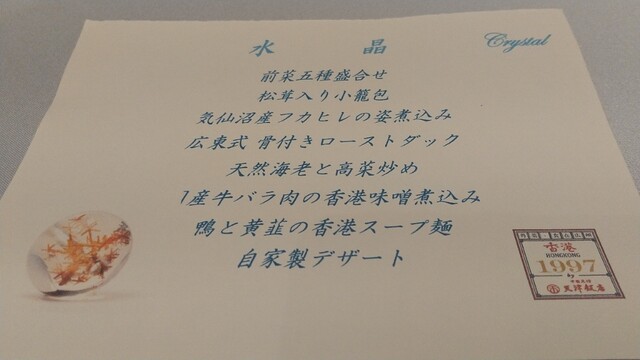 水 晶
Crystal
前菜五種盛合せ
松茸入り小籠包
気仙沼産フカヒレの姿煮込み
広東式 骨付きローストダック
天然海老と高菜炒め
産牛バラ肉の香港味噌煮込み
鴨と黄韮の香港スープ麺
自家製デザート
香港
HONGKONG
1997
by